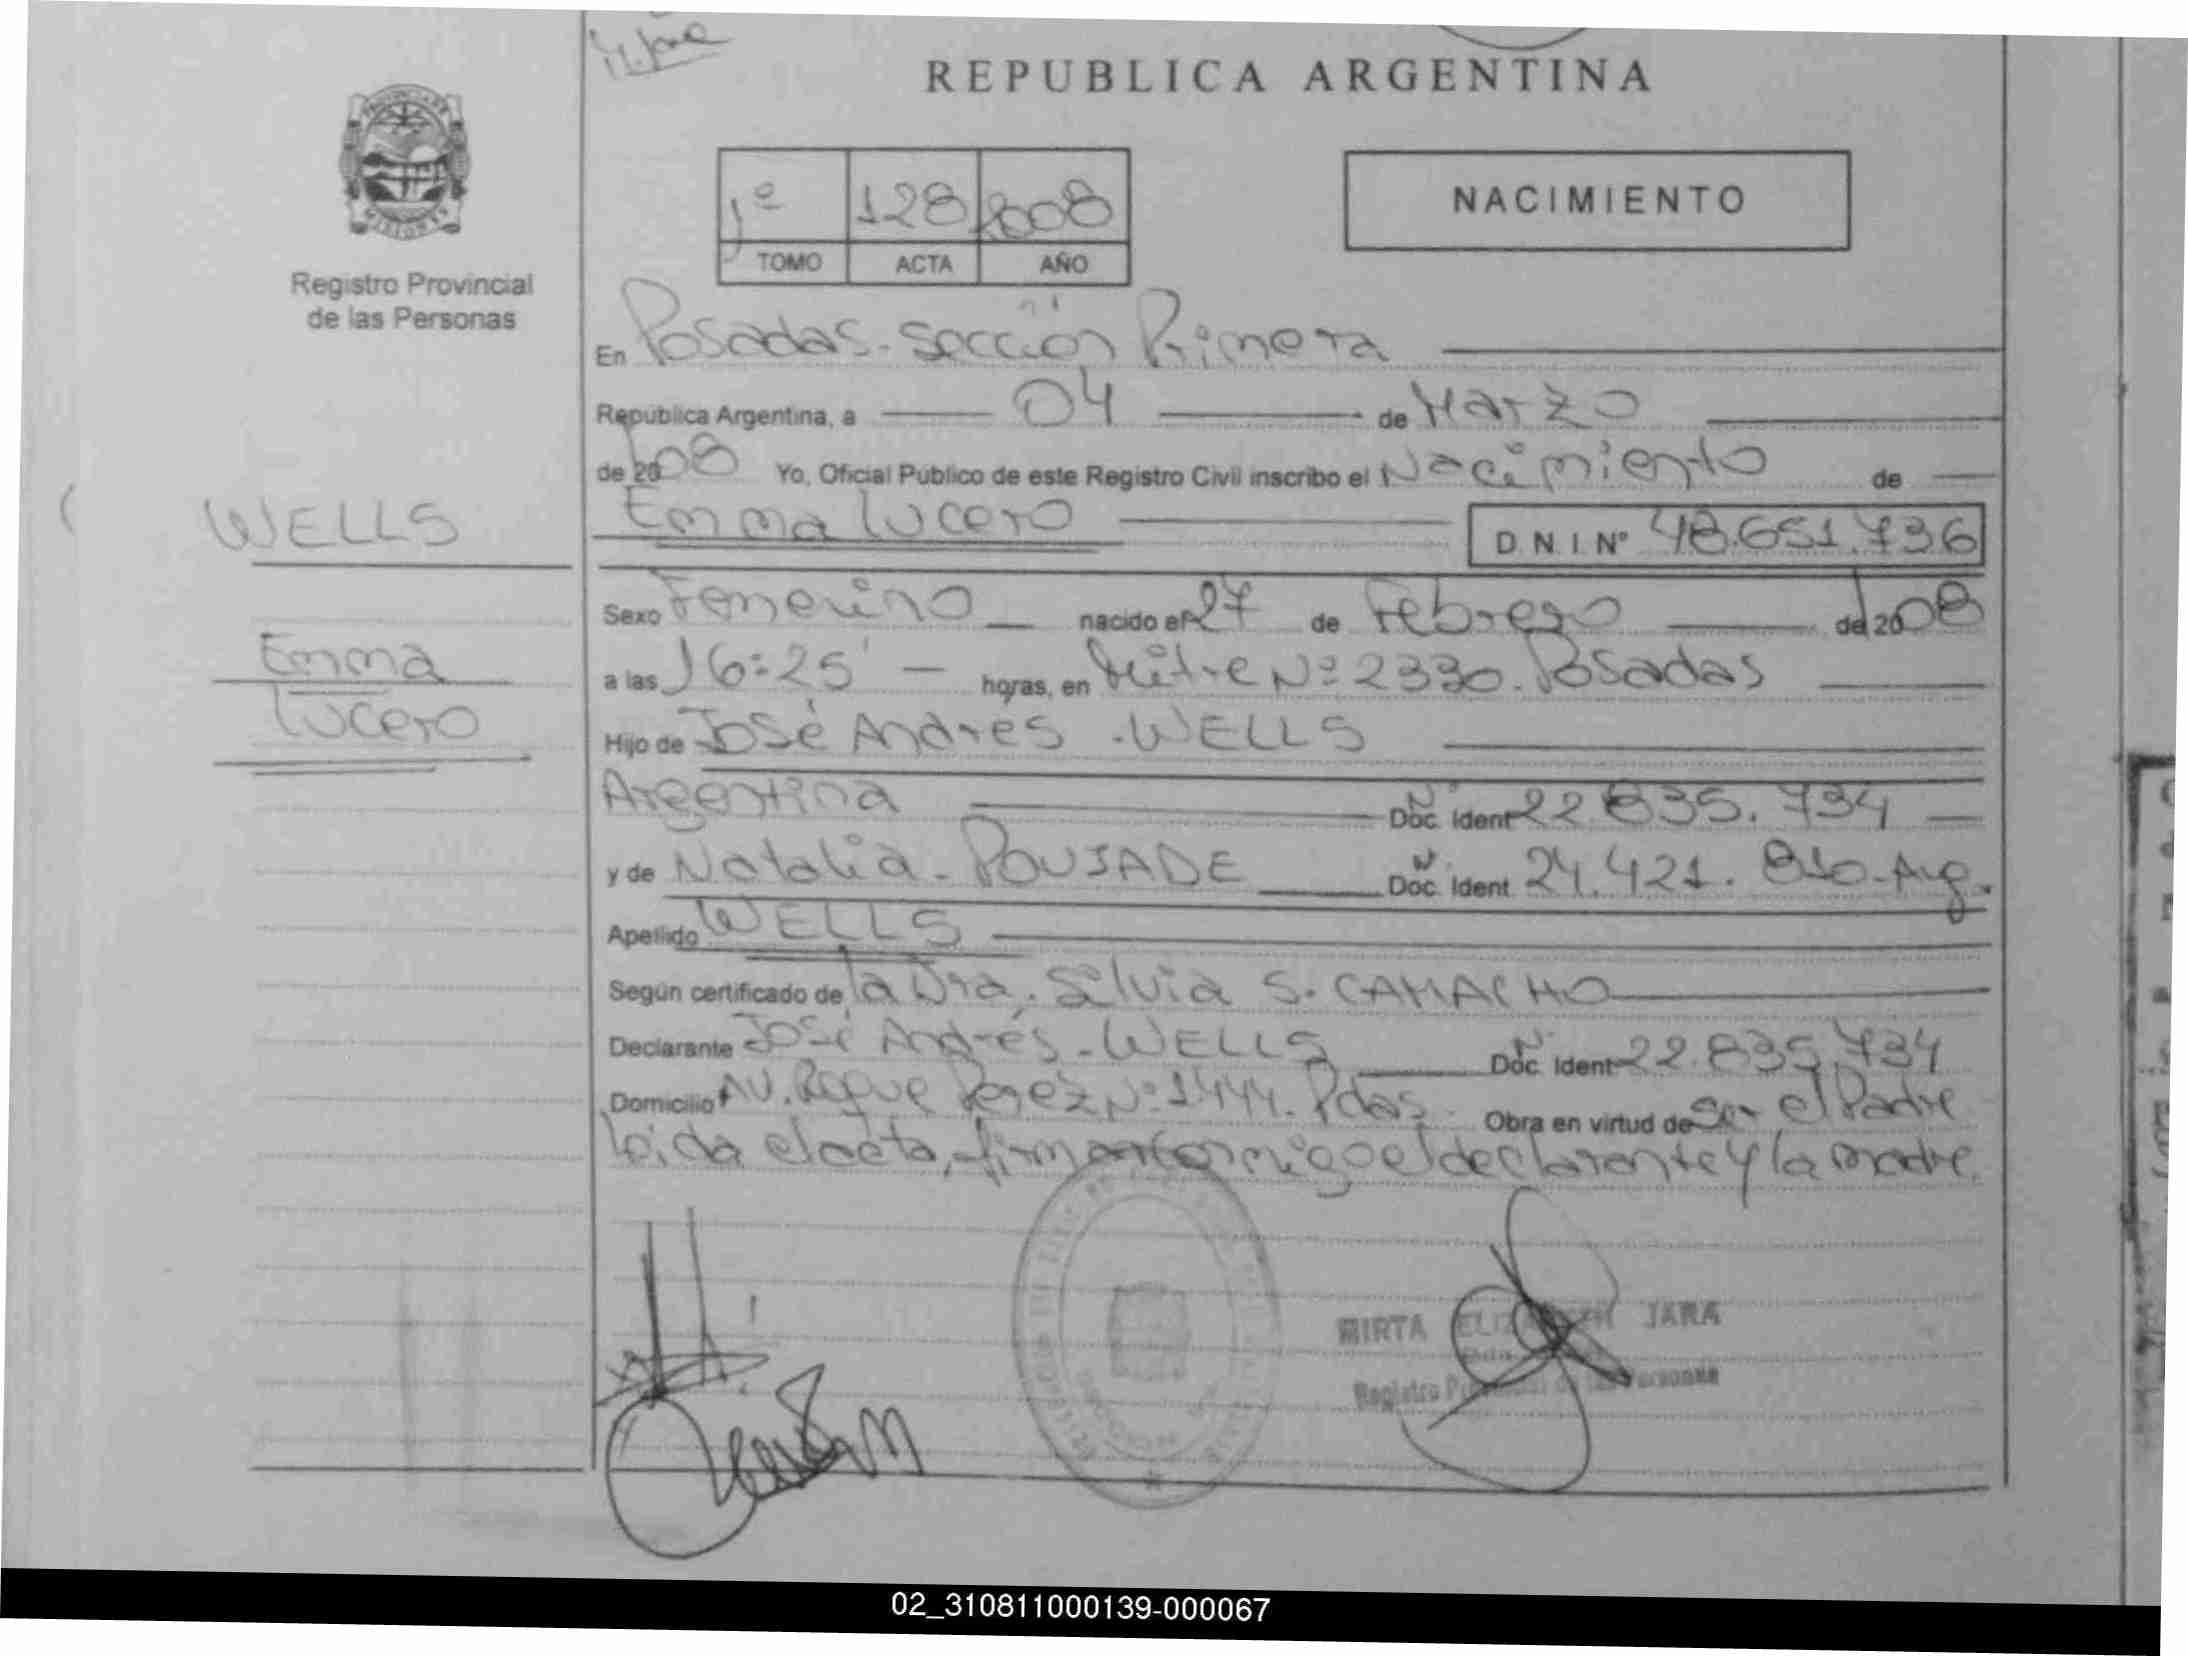 REPUBLICA ARGENTINA
PROVINCIA DE
MISIONES
Registro Provincial
de las Personas
1º 128 2008
TOMO ACTA AÑO
NACIMIENTO
En Posadas. Sección Primera
República Argentina, a 04 de Marzo
de 2008 Yo, Oficial Público de este Registro Civil inscribo el Nacimiento de
WELLS
Emma Lucero
D.N.I Nº 48.651.736
Sexo Femenino nacido el 27 de Febrero de 2008
Emma
Lucero
a las 16:25' horas, en Mitre Nº 2330. Posadas
Hijo de José Andres WELLS
Argentina Nº Doc. Ident 22.835.734
y de Natalia POUJADE Nº Doc. Ident. 24.421.810-Arg.
Apellido WELLS
Según certificado de la Dra. Silvia S. CAMACHO
Declarante José Andrés WELLS Nº Doc. Ident 22.835.734
Domicilio Av. Roque Perez Nº 1444. Pdas. Obra en virtud de Ser el Padre
Leida el acta, firman conmigo el declarante y la madre.
MIRTA ELIZABETH JARA
Registro Provincial de las Personas
02_310811000139-000067